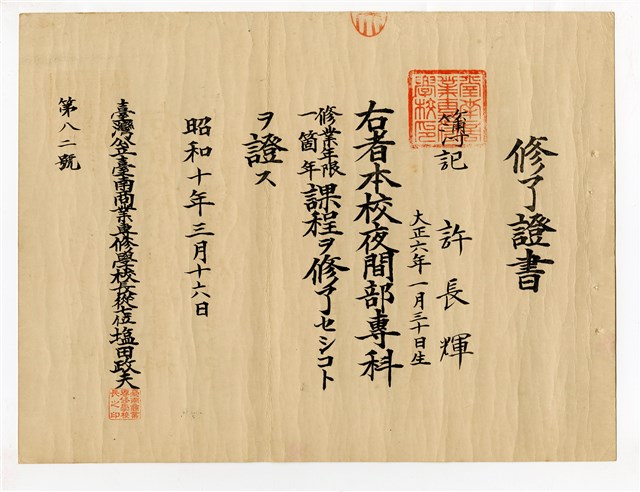 修了證書
簿記
許長輝
大正六年一月三十日生
右者本校夜間部專科
修業年限
一箇年
課程ヲ修了セシコト
ヲ證ス
昭和十年三月十六日
臺灣公立臺南商業專修學校長從七位塩田政夫
第八二號